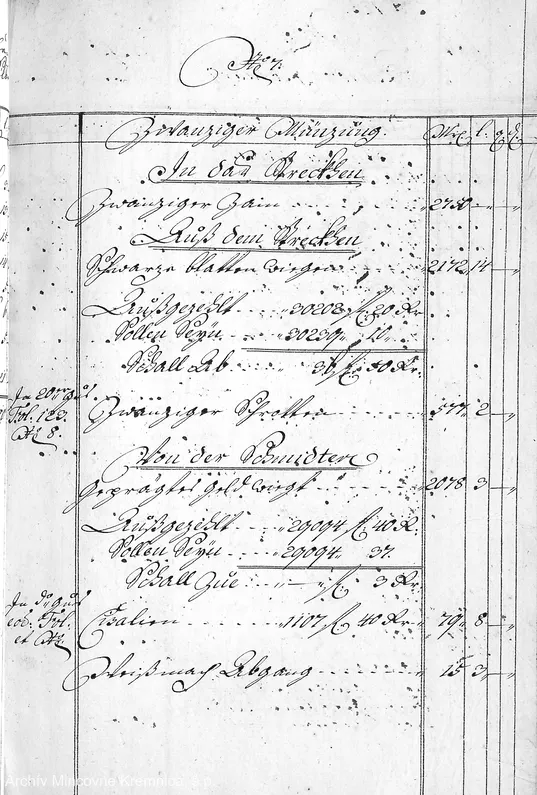 No 7.
Zwanziger Münzung. Mrk l. q d
In das Strecken
Zwanziger Zain 2750 - -
Auß dem Strecken
Schwarze blatten wiegen 2172 14 -
Außgezehlt 30208 fl. 20 Kr
Sollen Seyn 30239 10
Schall Ab fl. 50 Kr.
In 20er guß
Fol. 123.
No 8.
Zwanziger Schrotten 577 2 -
Von der Schmidten
Geprägtes Geld wiegt 2078 3 -
Außgezehlt 29094 fl. 40 K.
Sollen Seyn 29094 37.
Schall Zue - fl. 3 Kr
In guß
eod. Fol.
et No
Cisalien 1107 fl. 40 Kr 79 8 -
Weißmach Abgang 15 3 -
Archív Mincovne Kremnica, š.p.